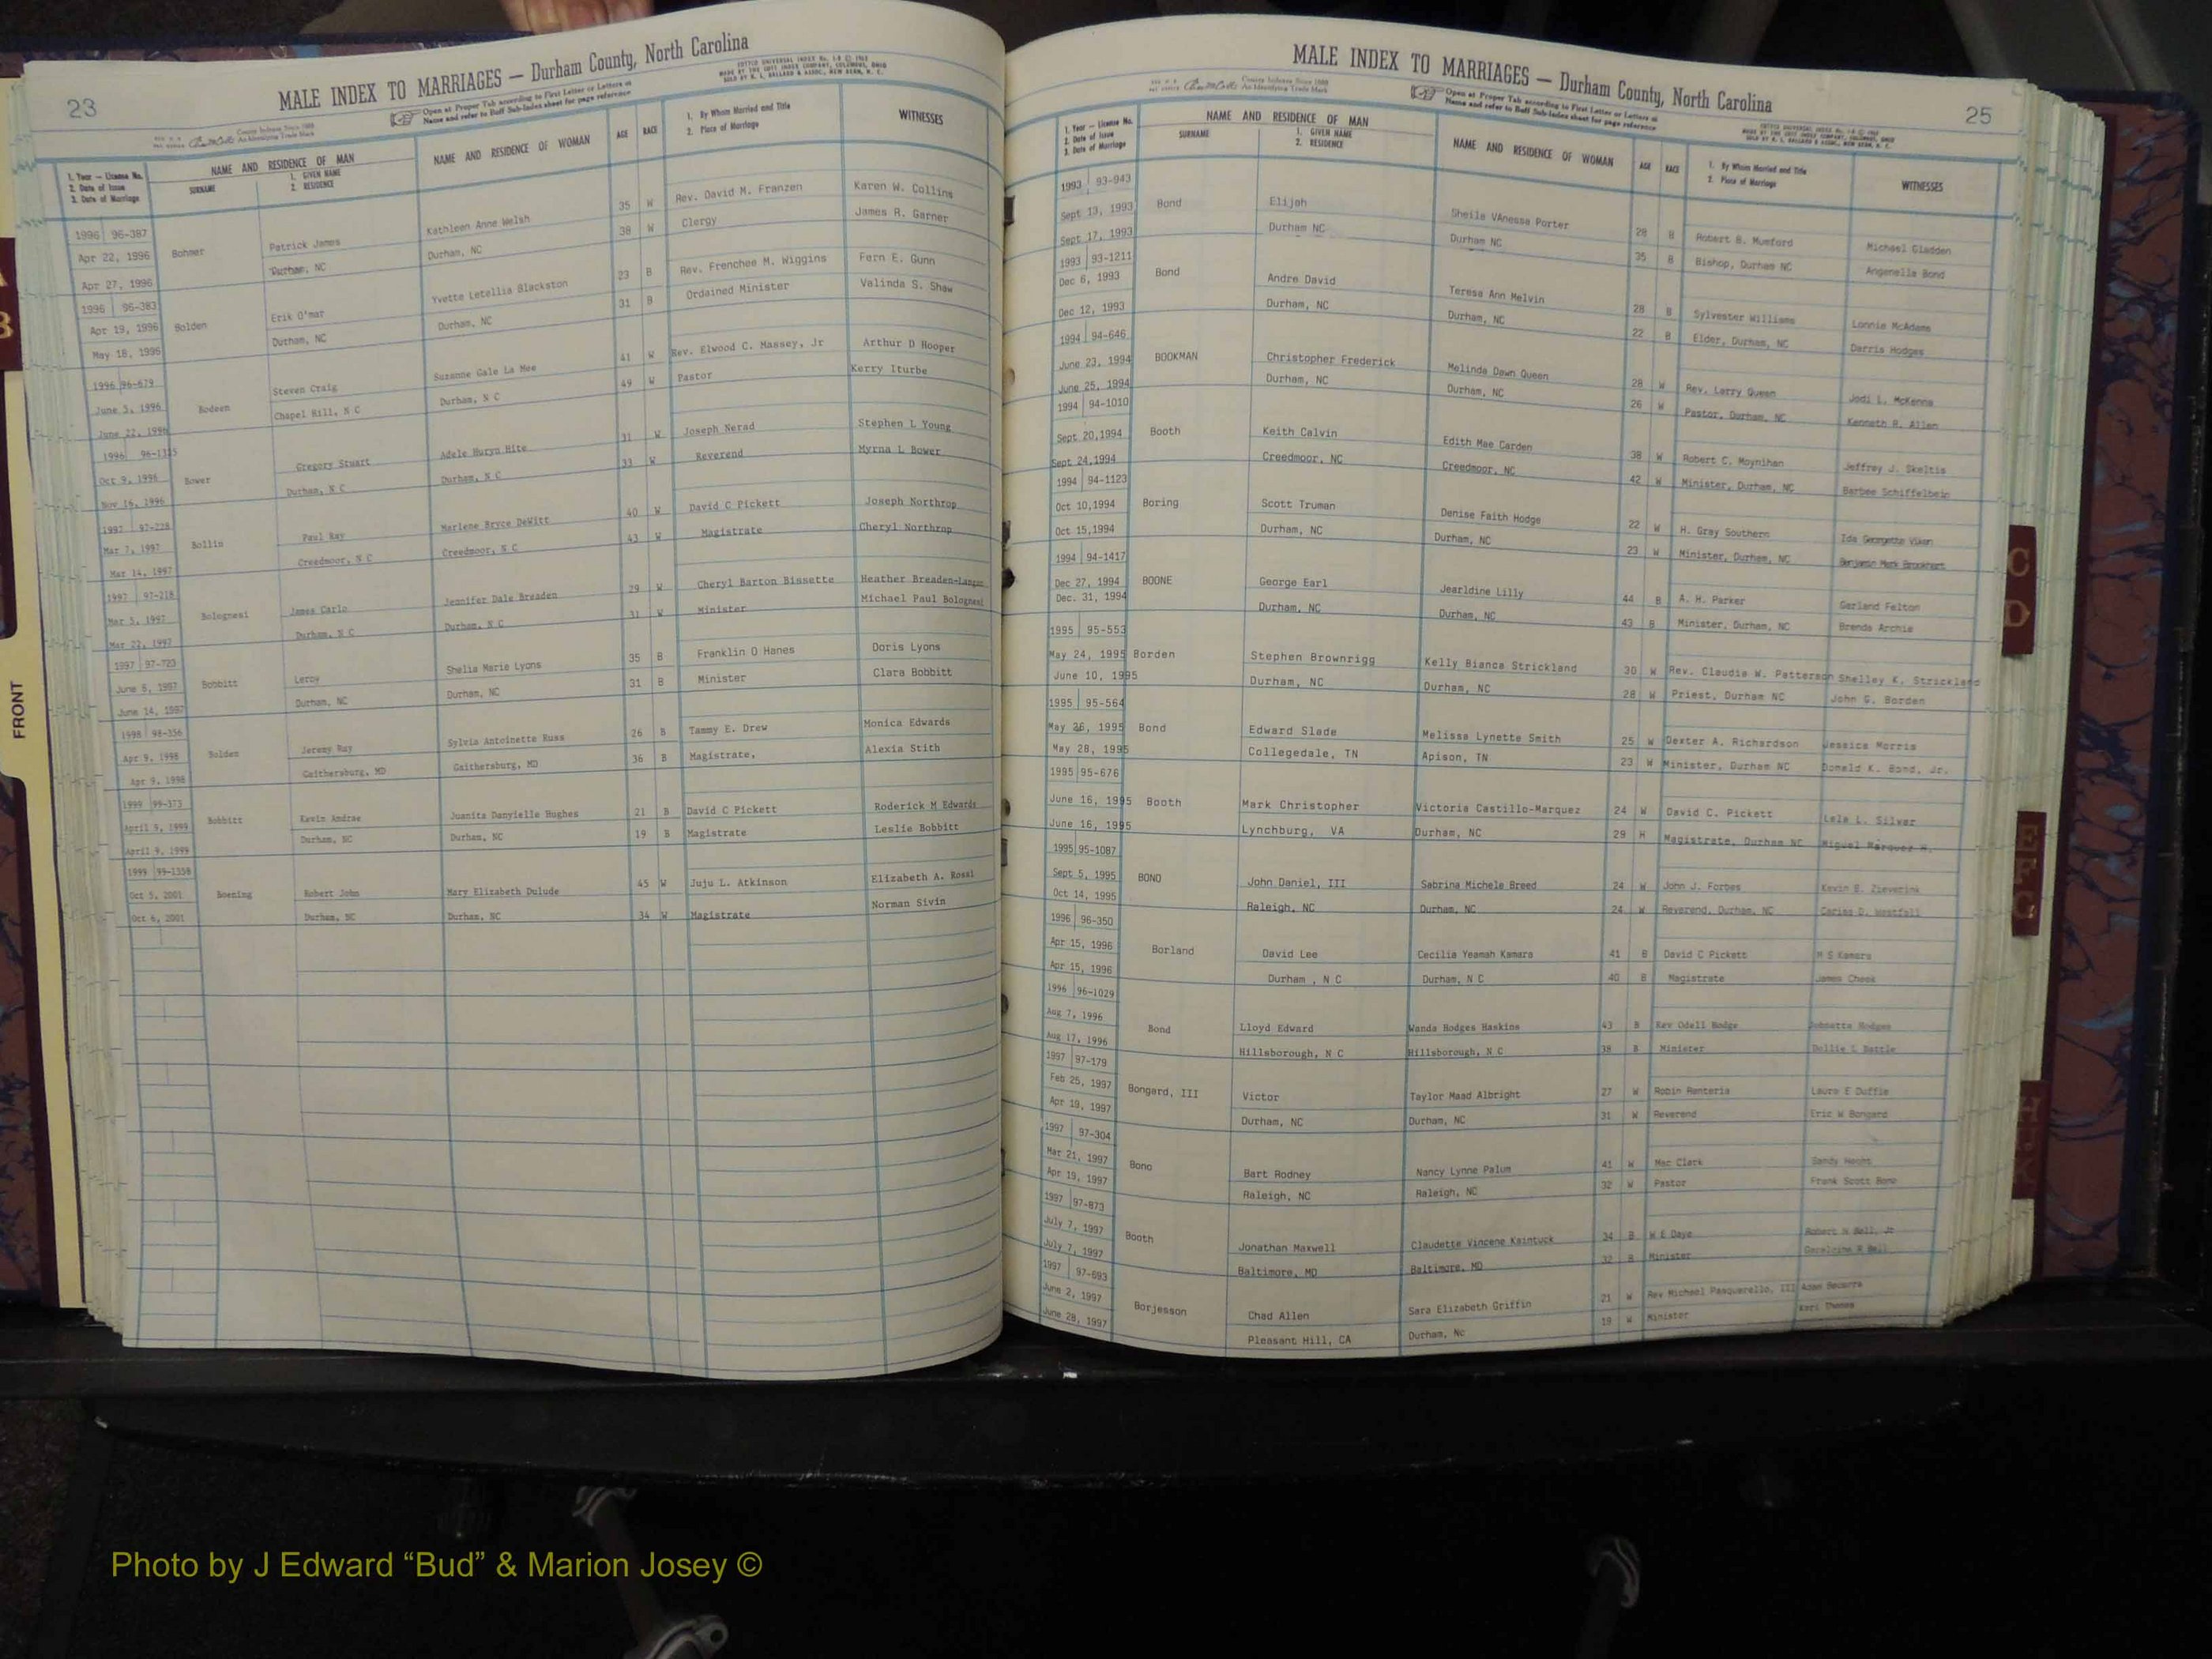 23
MALE INDEX TO MARRIAGES — Durham County, North Carolina
Open at Proper Tab according to First Letter or Letters of
Name and refer to Buff Sub-Index sheet for page reference
1. Year — License No.
2. Date of Issue
3. Date of Marriage
NAME AND RESIDENCE OF MAN
SURNAME
1. GIVEN NAME
2. RESIDENCE
NAME AND RESIDENCE OF WOMAN
AGE
RACE
1. By Whom Married and Title
2. Place of Marriage
WITNESSES
1996 96-387 Patrick James Kathleen Anne Welsh 35 W Rev. David M. Franzen Karen W. Collins
Apr 22, 1996 Bohmer Durham, NC Durham, NC 38 W Clergy James R. Garner
Apr 27, 1996
1996 96-383 Erik O'mar Yvette Letellia Blackston 23 B Rev. Frenchee M. Wiggins Fern E. Gunn
Apr 19, 1996 Bolden Durham, NC Durham, NC 31 B Ordained Minister Valinda S. Shaw
May 18, 1996
1996 96-679 Steven Craig Suzanne Gale La Mee 41 W Rev. Elwood C. Massey, Jr Arthur D Hooper
June 5, 1996 Bodeen Chapel Hill, N C Durham, N C 49 W Pastor Kerry Iturbe
June 22, 1996
1996 96-1315 Gregory Stuart Adele Huryn Hite 31 W Joseph Nerad Stephen L Young
Oct 9, 1996 Bower Durham, N C Durham, N C 33 W Reverend Myrna L Bower
Nov 16, 1996
1997 97-228 Paul Ray Marlene Bryce DeWitt 40 W David C Pickett Joseph Northrop
Mar 7, 1997 Bollin Creedmoor, N C Creedmoor, N C 43 W Magistrate Cheryl Northrop
Mar 14, 1997
1997 97-218 James Carlo Jennifer Dale Breaden 29 W Cheryl Barton Bissette Heather Breaden-Langer
Mar 5, 1997 Bolognesi Durham, N C Durham, N C 31 W Minister Michael Paul Bolognesi
Mar 22, 1997
1997 97-723 Leroy Shelia Marie Lyons 35 B Franklin O Hanes Doris Lyons
June 6, 1997 Bobbitt Durham, NC Durham, NC 31 B Minister Clara Bobbitt
June 14, 1997
1998 98-356 Jeremy Ray Sylvia Antoinette Russ 26 B Tammy E. Drew Monica Edwards
Apr 9, 1998 Bolden Gaithersburg, MD Gaithersburg, MD 36 B Magistrate, Alexia Stith
Apr 9, 1998
1999 99-373 Kevin Andrae Juanita Danyielle Hughes 21 B David C Pickett Roderick M Edwards
April 9, 1999 Bobbitt Durham, NC Durham, NC 19 B Magistrate Leslie Bobbitt
April 9, 1999
1999 99-1358 Robert John Mary Elizabeth Dulude 45 W Juju L. Atkinson Elizabeth A. Rossi
Oct 5, 2001 Boening Durham, NC Durham, NC 34 W Magistrate Norman Sivin
Oct 6, 2001
MALE INDEX TO MARRIAGES — Durham County, North Carolina
25
Open at Proper Tab according to First Letter or Letters of
Name and refer to Buff Sub-Index sheet for page reference
1. Year — License No.
2. Date of Issue
3. Date of Marriage
NAME AND RESIDENCE OF MAN
SURNAME
1. GIVEN NAME
2. RESIDENCE
NAME AND RESIDENCE OF WOMAN
AGE
RACE
1. By Whom Married and Title
2. Place of Marriage
WITNESSES
1993 93-943
Sept 13, 1993 Bond Elijah Sheile VAnessa Porter 28 B Robert B. Mumford Michael Gladden
Sept 17, 1993 Durham NC Durham NC 35 B Bishop, Durham NC Angenella Bond
1993 93-1211
Dec 6, 1993 Bond Andre David Teresa Ann Melvin 28 B Sylvester Williams Lonnie McAdams
Dec 12, 1993 Durham, NC Durham, NC 22 B Elder, Durham, NC Darris Hodges
1994 94-646
June 23, 1994 BOOKMAN Christopher Frederick Melinda Dawn Queen 28 W Rev. Larry Queen Jodi L. McKenna
June 25, 1994 Durham, NC Durham, NC 26 W Pastor, Durham, NC Kenneth R. Allen
1994 94-1010
Sept 20,1994 Booth Keith Calvin Edith Mee Carden 38 W Robert C. Moynihan Jeffrey J. Skeltis
Sept 24,1994 Creedmoor, NC Creedmoor, NC 42 W Minister, Durham, NC Barbee Schiffelbein
1994 94-1123
Oct 10,1994 Boring Scott Truman Denise Faith Hodge 22 W H. Gray Southern Ida Georgette
Oct 15,1994 Durham, NC Durham, NC 23 W Minister, Durham, NC Benjamin Mark Brookhart
1994 94-1417
Dec 27, 1994 BOONE George Earl Jearldine Lilly 44 B A. H. Parker Garland Felton
Dec. 31, 1994 Durham, NC Durham, NC 43 B Minister, Durham, NC Brenda Archie
1995 95-553
May 24, 1995 Borden Stephen Brownrigg Kelly Bianca Strickland 30 W Rev. Claudie W. Patterson Shelley K. Strickland
June 10, 1995 Durham, NC Durham, NC 28 W Priest, Durham NC John G. Borden
1995 95-564
May 26, 1995 Bond Edward Slade Melissa Lynette Smith 25 W Dexter A. Richardson Jessica Morris
May 28, 1995 Collegedale, TN Apison, TN 23 W Minister, Durham NC Donald K. Bond, Jr.
1995 95-676
June 16, 1995 Booth Mark Christopher Victoria Castillo-Marquez 24 W David C. Pickett Lela L. Silver
June 16, 1995 Lynchburg, VA Durham, NC 29 H Magistrate, Durham NC Miguel Marquez H.
1995 95-1087
Sept 5, 1995 BONO John Daniel, III Sabrina Michele Breed 24 W John J. Forbes Kevin B.
Oct 14, 1995 Raleigh, NC Durham, NC 24 W Reverend, Durham, NC Cariss D. Westfall
1996 96-350
Apr 15, 1996 Borland David Lee Cecilia Yeamah Kamara 41 B David C Pickett M S Kamara
Apr 15, 1996 Durham , N C Durham, N C 40 B Magistrate James Cheek
1996 96-1029
Aug 7, 1996 Bond Lloyd Edward Wanda Hodges Haskins 43 B Rev Odell Hodge Johnetta Hodges
Aug 17, 1996 Hillsborough, N C Hillsborough, N C 38 B Minister Dollie L Battle
1997 97-179
Feb 25, 1997 Bongard, III Victor Taylor Maad Albright 27 W Robin Renteria Laura E Duffie
Apr 19, 1997 Durham, NC Durham, NC 31 W Reverend Eric W Bongard
1997 97-304
Mar 21, 1997 Bono Bart Rodney Nancy Lynne Palum 41 W Mac Clark Sandy Hecht
Apr 19, 1997 Raleigh, NC Raleigh, NC 32 W Pastor Frank Scott Bono
1997 97-873
July 7, 1997 Booth Jonathan Maxwell Claudette Vincene Kaintuck 34 B W E Daye Robert N Bell, Jr
July 7, 1997 Baltimore, MD Baltimore, MD 32 B Minister Geraldine R Bell
1997 97-693
June 2, 1997 Borjesson Chad Allen Sara Elizabeth Griffin 21 W Rev Michael Pasquerello, III Adam Becerra
June 28, 1997 Pleasant Hill, CA Durham, Nc 19 W Minister Keri Thomas
FRONT
B
C
D
E F
G
Photo by J Edward “Bud” & Marion Josey ©